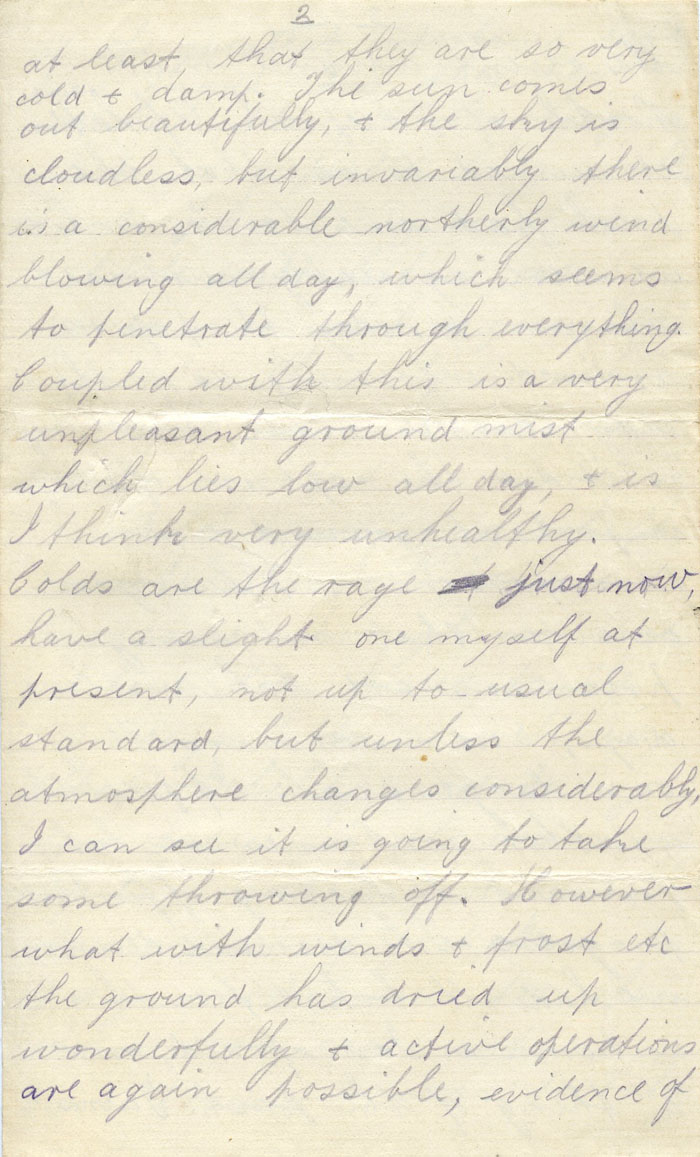 2
at least, that they are so very
cold & damp. The sun comes
out beautifully, & the sky is
cloudless, but invariably there
is a considerable northerly wind
blowing all day, which seems
to penetrate through everything.
Coupled with this is a very
unpleasant ground mist
which lies low all day, & is
I think very unhealthy.
Colds are the rage just now,
have a slight one myself at
present, not up to usual
standard, but unless the
atmosphere changes considerably,
I can see it is going to take
some throwing off. However
what with winds & frost etc
the ground has dried up
wonderfully & active operations
are again possible, evidence of